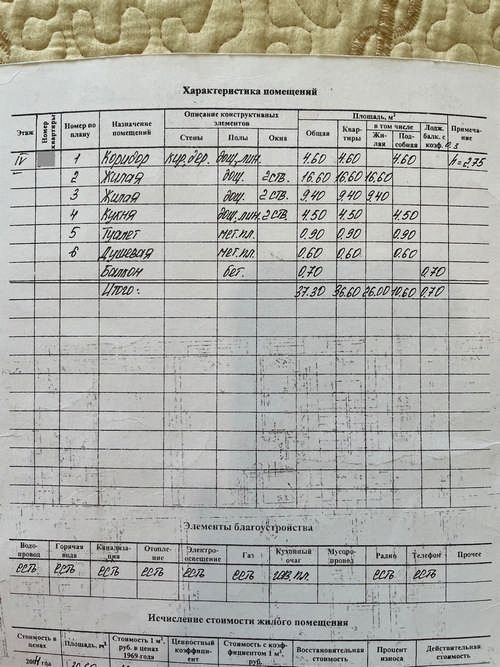 Характеристика помещений
Этаж Номер квартиры Номер по плану Назначение помещений Описание конструктивных элементов Площадь, м² Примеча-ние
Стены Полы Окна Общая Квар-тиры в том числе Жи-лая Под-собная Лодж. балк. с коэф. 0,3
IV 1 Коридор кир.дер. дощ.лин. 4.60 4.60 4.60 h=2.75
2 Жилая дощ. 2 ств. 16.60 16.60 16.60
3 Жилая дощ. 2 ств. 9.40 9.40 9.40
4 Кухня дощ.лин. 2 ств. 4.50 4.50 4.50
5 Туалет мет.пл. 0,90 0,90 0.90
6 Душевая мет.пл. 0,60 0,60 0.60
Балкон бет. 0,70 0,70
Итого: 37.30 36.60 26.00 10,60 0,70
Элементы благоустройства
Водо-провод Горячая вода Канализа-ция Отопле-ние Электро-освещение Газ Кухонный очаг Мусоро-провод Радио Телефон Прочее
есть есть есть есть есть есть газ. пл. есть есть
Исчисление стоимости жилого помещения
Стоимость в ценах Площадь, м² Стоимость 1 м², руб. в ценах 1969 года Ценностный коэффици-ент Стоимость с коэф-фициентом 1 м², руб. Восстановительная стоимость Процент износа Действительная стоимость
года